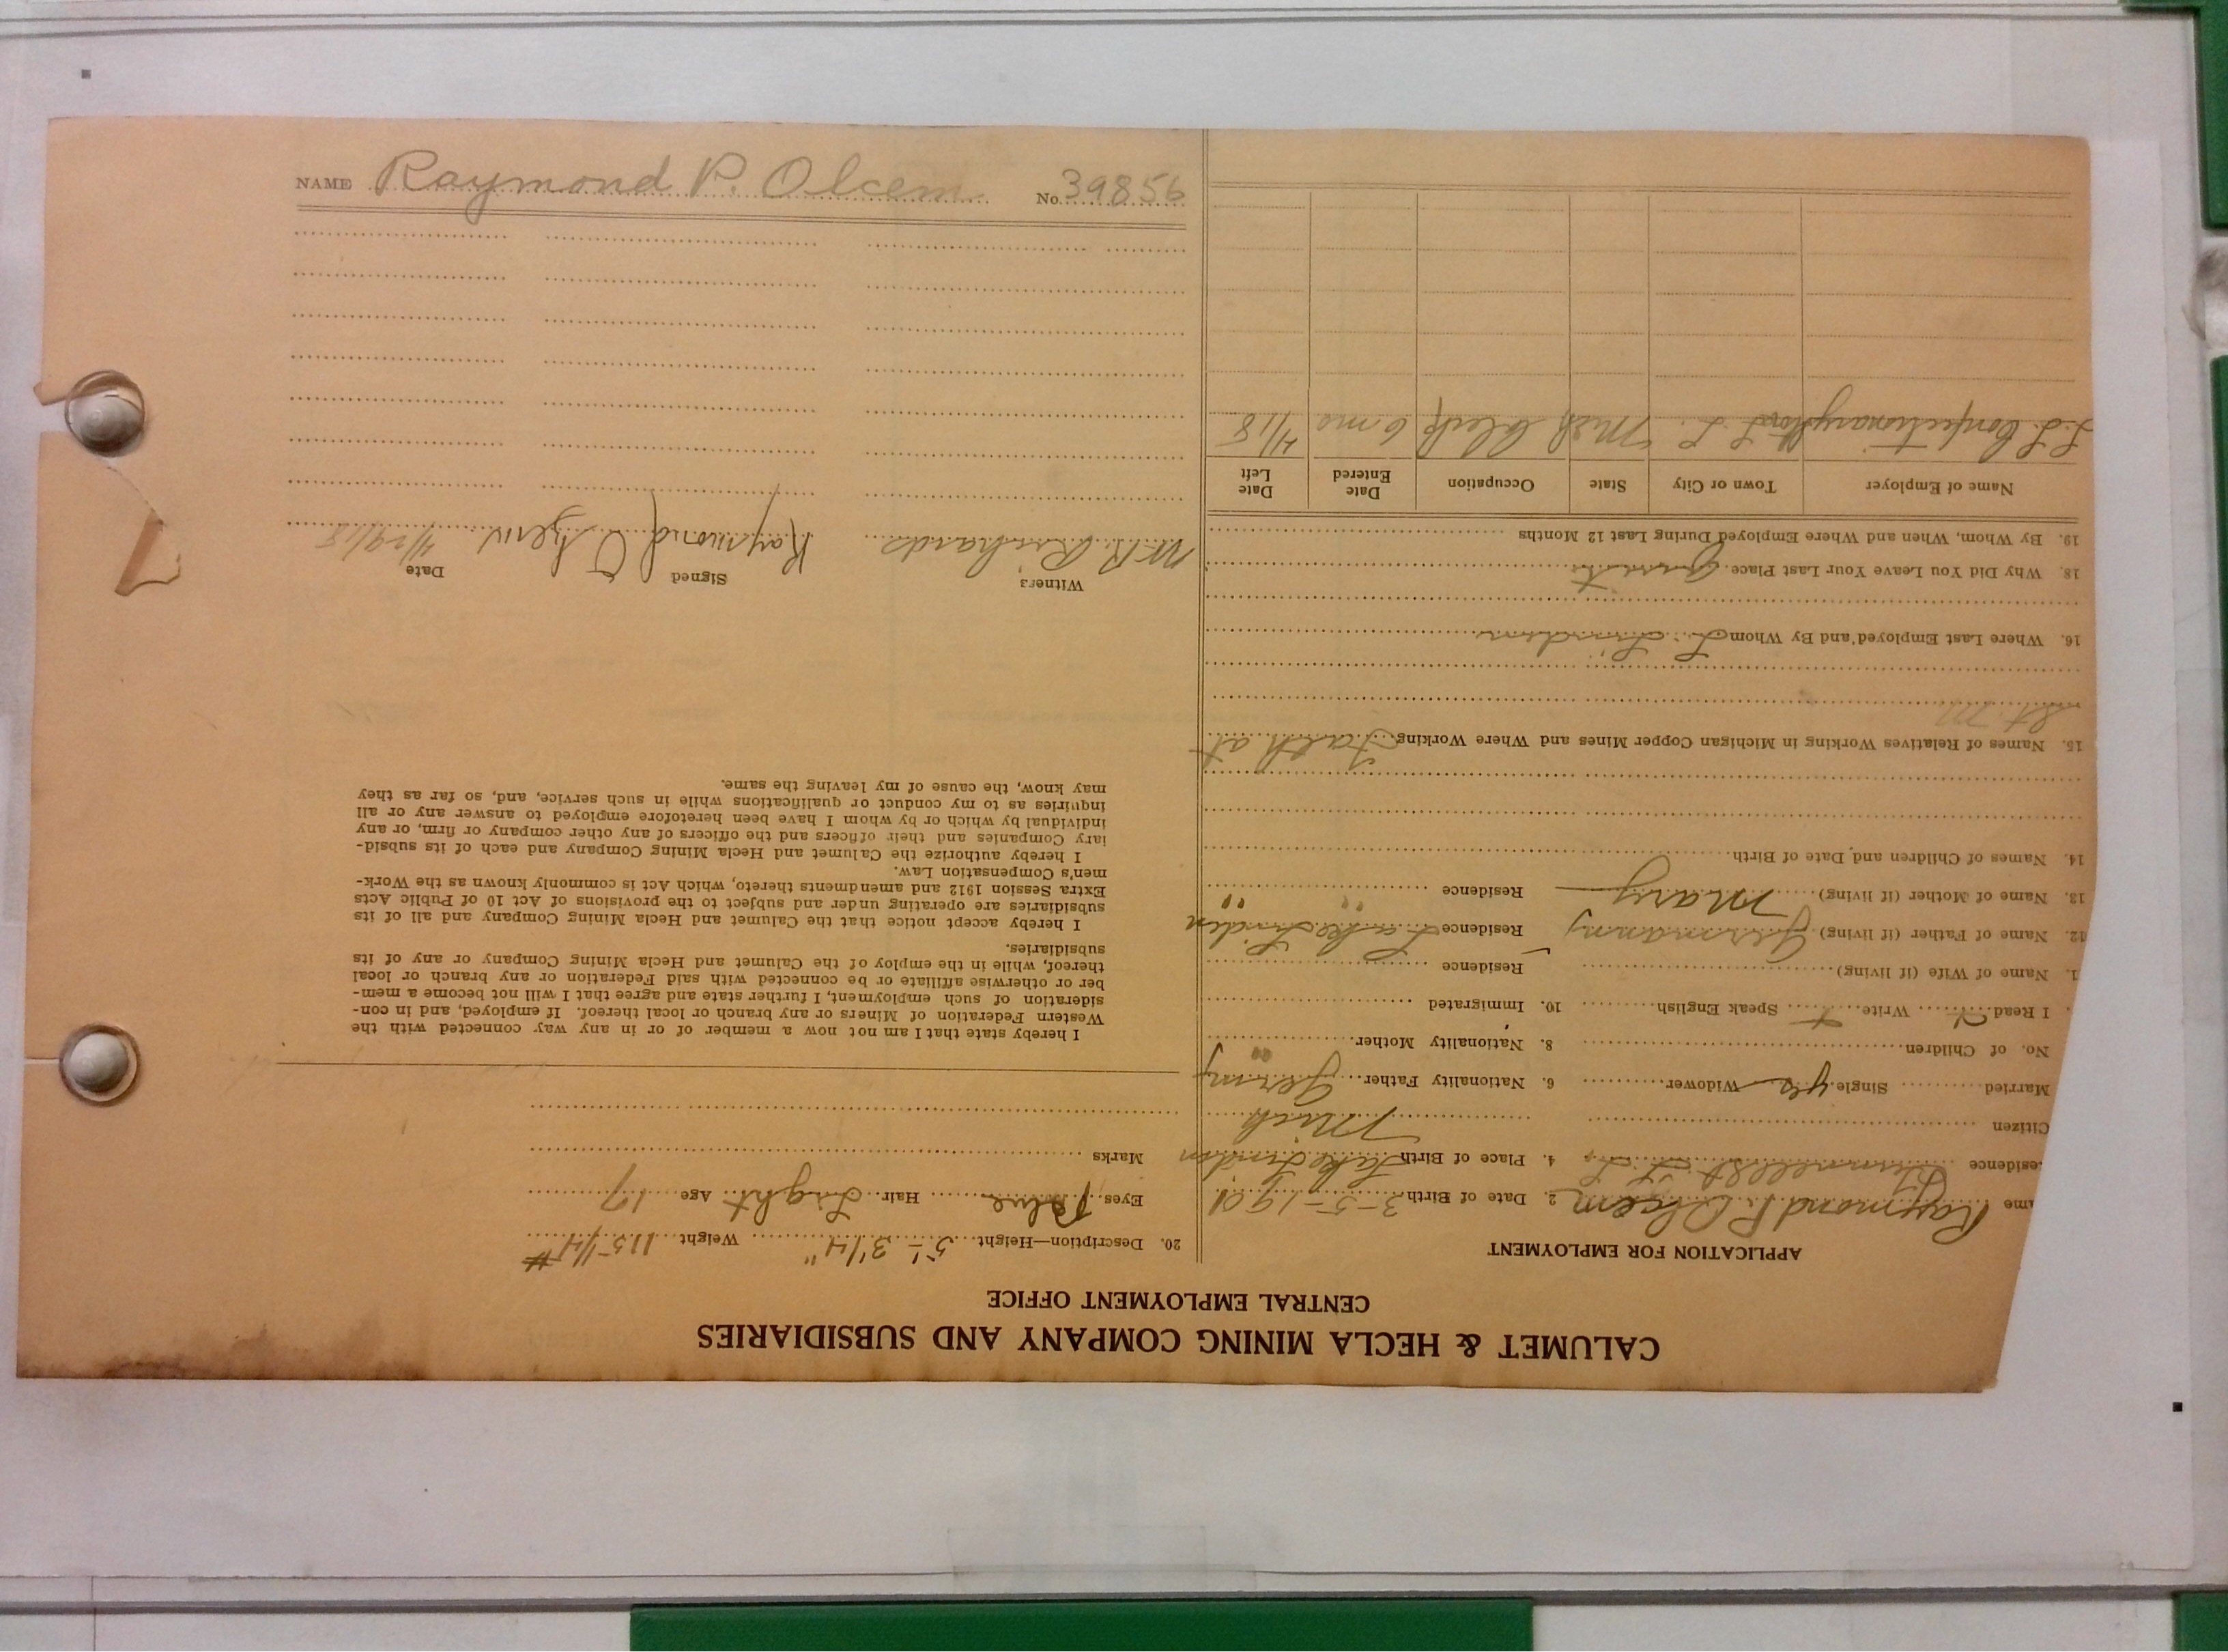 NAME Raymond P. Olcem No. 39856
CALUMET & HECLA MINING COMPANY AND SUBSIDIARIES
CENTRAL EMPLOYMENT OFFICE
APPLICATION FOR EMPLOYMENT
ame Raymond P. Olcem 2. Date of Birth 3-5-1901
esidence L. L. 4. Place of Birth Lake Linden
Citizen Mich
Married Single yes Widower 6. Nationality Father Germ
No. of Children 8. Nationality Mother " "
I Read Write Speak English 10. Immigrated
1. Name of Wife (if living) Residence
12. Name of Father (if living) Residence Lake Linden
13. Name of Mother (if living) Mary Residence " "
14. Names of Children and Date of Birth
15. Names of Relatives Working in Michigan Copper Mines and Where Working at
St. M
16. Where Last Employed and By Whom L. Linden
18. Why Did You Leave Your Last Place
19. By Whom, When and Where Employed During Last 12 Months
Name of Employer Town or City State Occupation Date Entered Date Left
L.L. Confectionary Store L. L. Mich Clerk 6 mo 4/18
20. Description—Height 5'- 3 1/4" Weight 115 1/4 #
Eyes Blue Hair Light Age 17
Marks
I hereby state that I am not now a member of or in any way connected with the
Western Federation of Miners or any branch or local thereof. If employed, and in con-
sideration of such employment, I further state and agree that I will not become a mem-
ber or otherwise affiliate or be connected with said Federation or any branch or local
thereof, while in the employ of the Calumet and Hecla Mining Company or any of its
subsidiaries.
I hereby accept notice that the Calumet and Hecla Mining Company and all of its
subsidiaries are operating under and subject to the provisions of Act 10 of Public Acts
Extra Session 1912 and amendments thereto, which Act is commonly known as the Work-
men's Compensation Law.
I hereby authorize the Calumet and Hecla Mining Company and each of its subsid-
iary Companies and their officers and the officers of any other company or firm, or any
individual by which or by whom I have been heretofore employed to answer any or all
inquiries as to my conduct or qualifications while in such service, and, so far as they
may know, the cause of my leaving the same.
Witness Signed Date
W.R. Richards Raymond 4/29/18